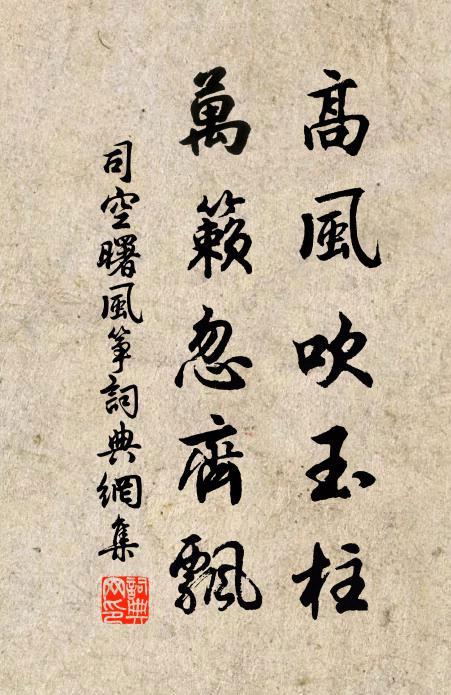 高風吹玉柱
萬籟忽齊飄
司空曙風箏詞典網集
詞典網印